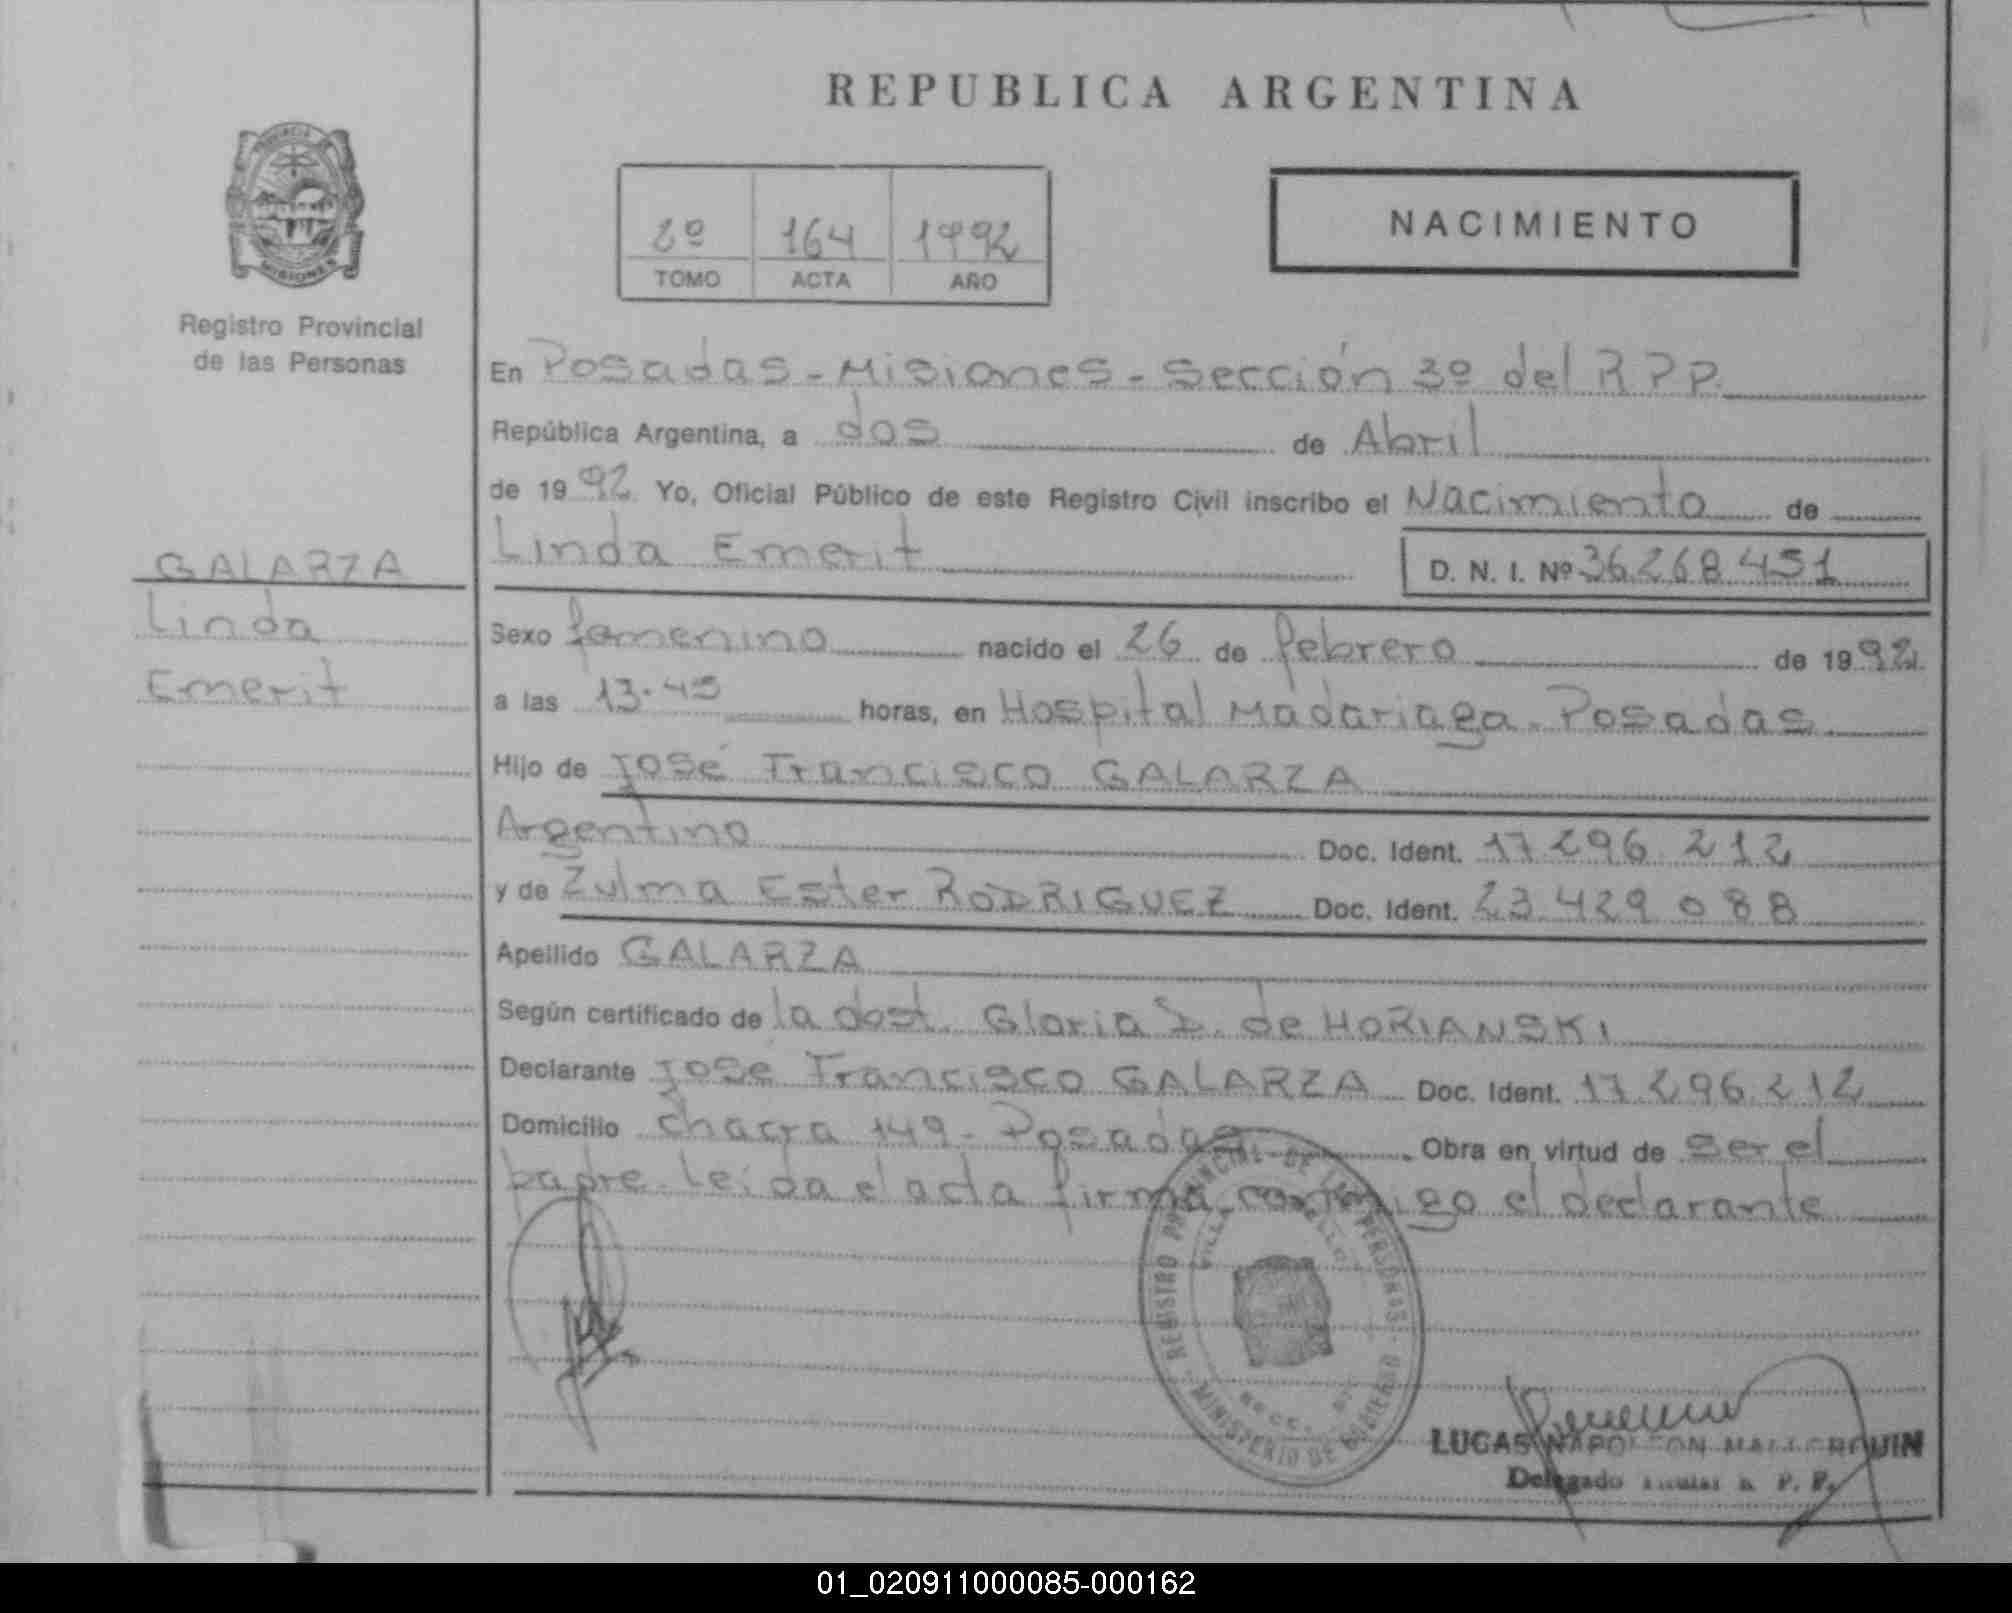 REPUBLICA ARGENTINA
PROVINCIA
MISIONES
Registro Provincial
de las Personas
2º 164 1992
TOMO ACTA AÑO
NACIMIENTO
En Posadas - Misiones - Sección 3º del R P P.
República Argentina, a dos de Abril
de 1992 Yo, Oficial Público de este Registro Civil inscribo el Nacimiento de
GALARZA
Linda
Emerit
Linda Emerit D. N. I. Nº 36.268.451
Sexo femenino nacido el 26 de febrero de 1992
a las 13.45 horas, en Hospital Madariaga - Posadas
Hijo de José Francisco GALARZA
Argentino Doc. Ident. 17.296.212
y de Zulma Ester RODRIGUEZ Doc. Ident. 23.429.088
Apellido GALARZA
Según certificado de la dost. Gloria de HORIANSKI
Declarante José Francisco GALARZA Doc. Ident. 17.296.212
Domicilio Chacra 149 - Posadas Obra en virtud de ser el
padre. Leída el acta firma conmigo el declarante
REGISTRO PROVINCIAL DE LAS PERSONAS
MINISTERIO DE GOBIERNO
LUCAS NAPOLEON MALLORQUIN
Delegado R. P. P.
01_020911000085-000162